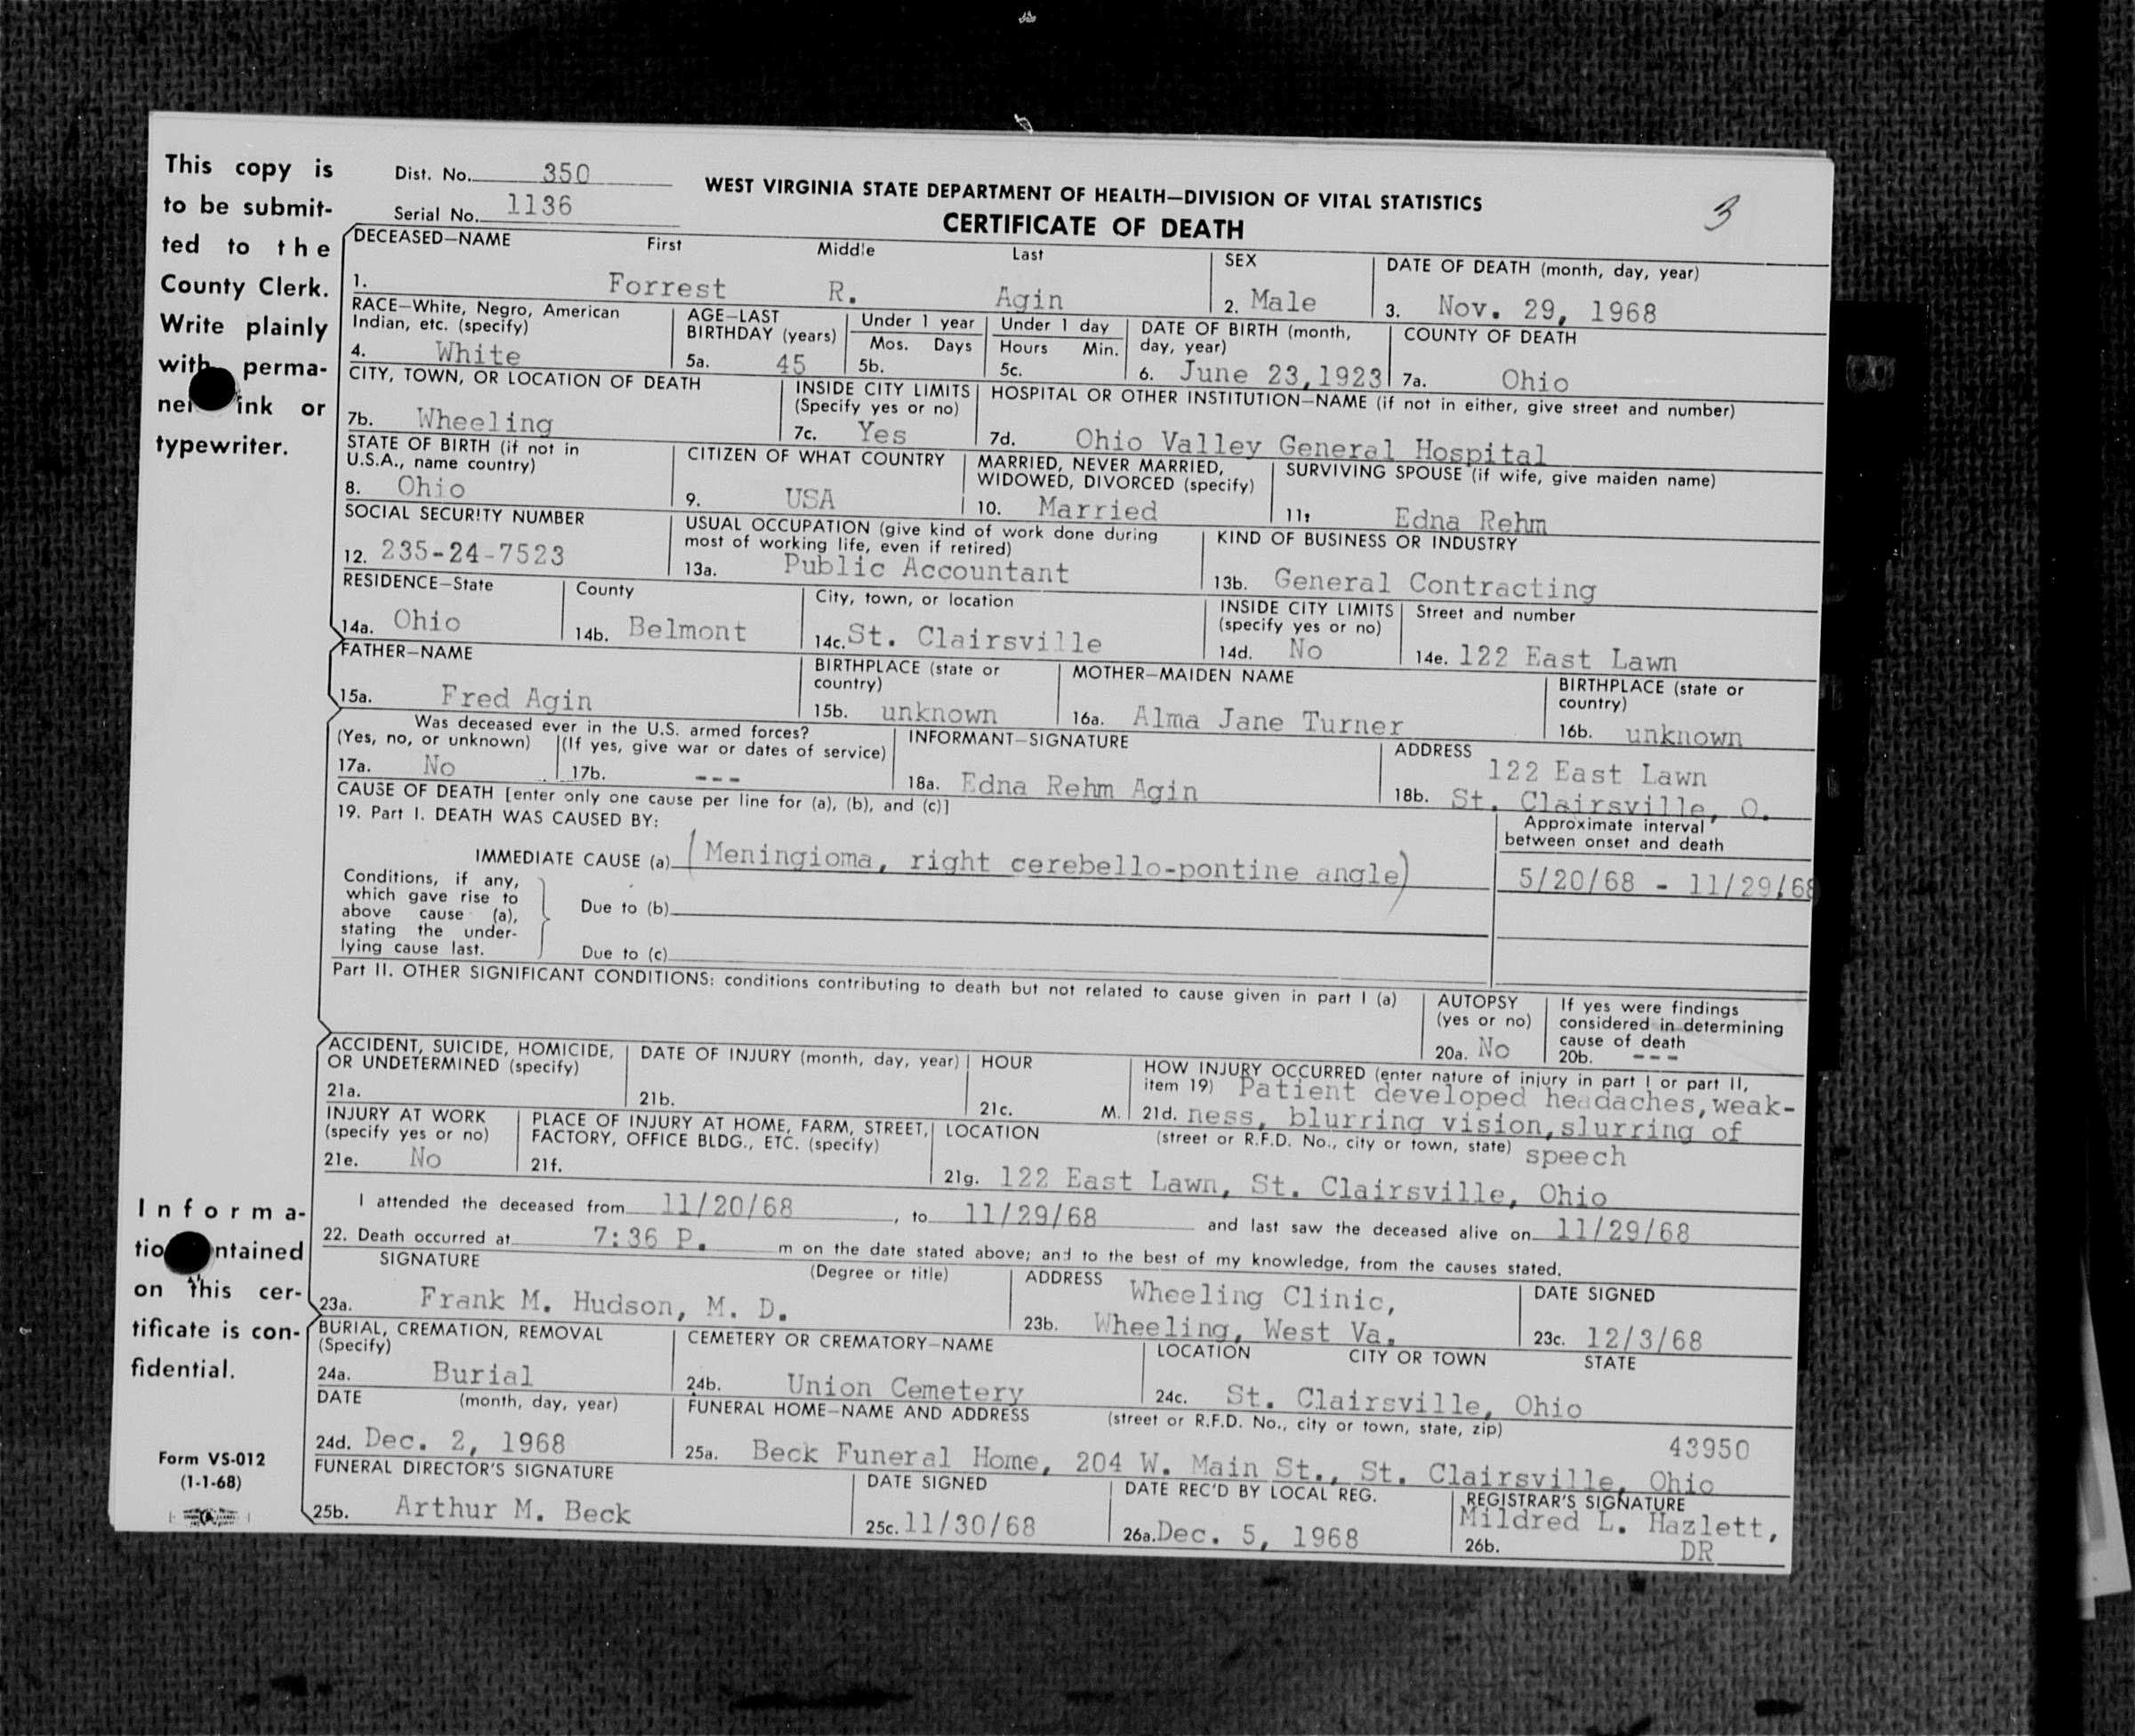 This copy is
to be submit-
ted to the
County Clerk.
Write plainly
with perma-
ink or
typewriter.
Dist. No. 350
Serial No. 1136
WEST VIRGINIA STATE DEPARTMENT OF HEALTH—DIVISION OF VITAL STATISTICS
CERTIFICATE OF DEATH
3
DECEASED—NAME First Middle Last
1. Forrest R. Agin
SEX
2. Male
DATE OF DEATH (month, day, year)
3. Nov. 29, 1968
RACE—White, Negro, American
Indian, etc. (specify)
4. White
AGE—LAST
BIRTHDAY (years)
5a. 45
Under 1 year
Mos. Days
5b.
Under 1 day
Hours Min.
5c.
DATE OF BIRTH (month,
day, year)
6. June 23,1923
COUNTY OF DEATH
7a. Ohio
CITY, TOWN, OR LOCATION OF DEATH
7b. Wheeling
INSIDE CITY LIMITS
(Specify yes or no)
7c. Yes
HOSPITAL OR OTHER INSTITUTION—NAME (if not in either, give street and number)
7d. Ohio Valley General Hospital
STATE OF BIRTH (if not in
U.S.A., name country)
8. Ohio
CITIZEN OF WHAT COUNTRY
9. USA
MARRIED, NEVER MARRIED,
WIDOWED, DIVORCED (specify)
10. Married
SURVIVING SPOUSE (if wife, give maiden name)
11. Edna Rehm
SOCIAL SECURITY NUMBER
12. 235-24-7523
USUAL OCCUPATION (give kind of work done during
most of working life, even if retired)
13a. Public Accountant
KIND OF BUSINESS OR INDUSTRY
13b. General Contracting
RESIDENCE—State
14a. Ohio
County
14b. Belmont
City, town, or location
14c. St. Clairsville
INSIDE CITY LIMITS
(specify yes or no)
14d. No
Street and number
14e. 122 East Lawn
FATHER—NAME
15a. Fred Agin
BIRTHPLACE (state or
country)
15b. unknown
MOTHER—MAIDEN NAME
16a. Alma Jane Turner
BIRTHPLACE (state or
country)
16b. unknown
Was deceased ever in the U.S. armed forces?
(Yes, no, or unknown) (If yes, give war or dates of service)
17a. No
17b. ---
INFORMANT—SIGNATURE
18a. Edna Rehm Agin
ADDRESS
122 East Lawn
18b. St. Clairsville, O.
CAUSE OF DEATH [enter only one cause per line for (a), (b), and (c)]
19. Part I. DEATH WAS CAUSED BY:
Approximate interval
between onset and death
IMMEDIATE CAUSE (a) (Meningioma, right cerebello-pontine angle)
5/20/68 - 11/29/68
Conditions, if any,
which gave rise to
above cause (a),
stating the under-
lying cause last.
Due to (b)
Due to (c)
Part II. OTHER SIGNIFICANT CONDITIONS: conditions contributing to death but not related to cause given in part I (a)
AUTOPSY
(yes or no)
20a. No
If yes were findings
considered in determining
cause of death
20b. ---
ACCIDENT, SUICIDE, HOMICIDE,
OR UNDETERMINED (specify)
21a.
DATE OF INJURY (month, day, year)
21b.
HOUR
21c. M.
HOW INJURY OCCURRED (enter nature of injury in part I or part II,
item 19) Patient developed headaches,weak-
21d. ness, blurring vision,slurring of
speech
INJURY AT WORK
(specify yes or no)
21e. No
PLACE OF INJURY AT HOME, FARM, STREET,
FACTORY, OFFICE BLDG., ETC. (specify)
21f.
LOCATION (street or R.F.D. No., city or town, state)
21g. 122 East Lawn, St. Clairsville, Ohio
I attended the deceased from 11/20/68, to 11/29/68 and last saw the deceased alive on 11/29/68
22. Death occurred at 7:36 P. m on the date stated above; and to the best of my knowledge, from the causes stated.
SIGNATURE (Degree or title)
23a. Frank M. Hudson, M. D.
ADDRESS Wheeling Clinic,
23b. Wheeling, West Va.
DATE SIGNED
23c. 12/3/68
BURIAL, CREMATION, REMOVAL
(Specify)
24a. Burial
CEMETERY OR CREMATORY—NAME
24b. Union Cemetery
LOCATION CITY OR TOWN STATE
24c. St. Clairsville, Ohio
DATE (month, day, year)
24d. Dec. 2, 1968
FUNERAL HOME—NAME AND ADDRESS (street or R.F.D. No., city or town, state, zip)
43950
25a. Beck Funeral Home, 204 W. Main St., St. Clairsville, Ohio
FUNERAL DIRECTOR'S SIGNATURE
25b. Arthur M. Beck
DATE SIGNED
25c. 11/30/68
DATE REC'D BY LOCAL REG.
26a. Dec. 5, 1968
REGISTRAR'S SIGNATURE
Mildred L. Hazlett,
26b. DR
Informa-
ntained
on this cer-
tificate is con-
fidential.
Form VS-012
(1-1-68)